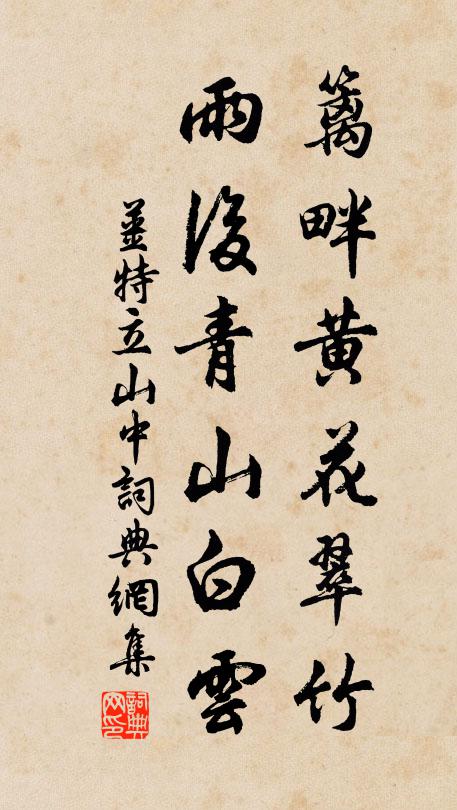 籬畔黄花翠竹
雨後青山白雲
姜特立山中詞典網集
詞典网印